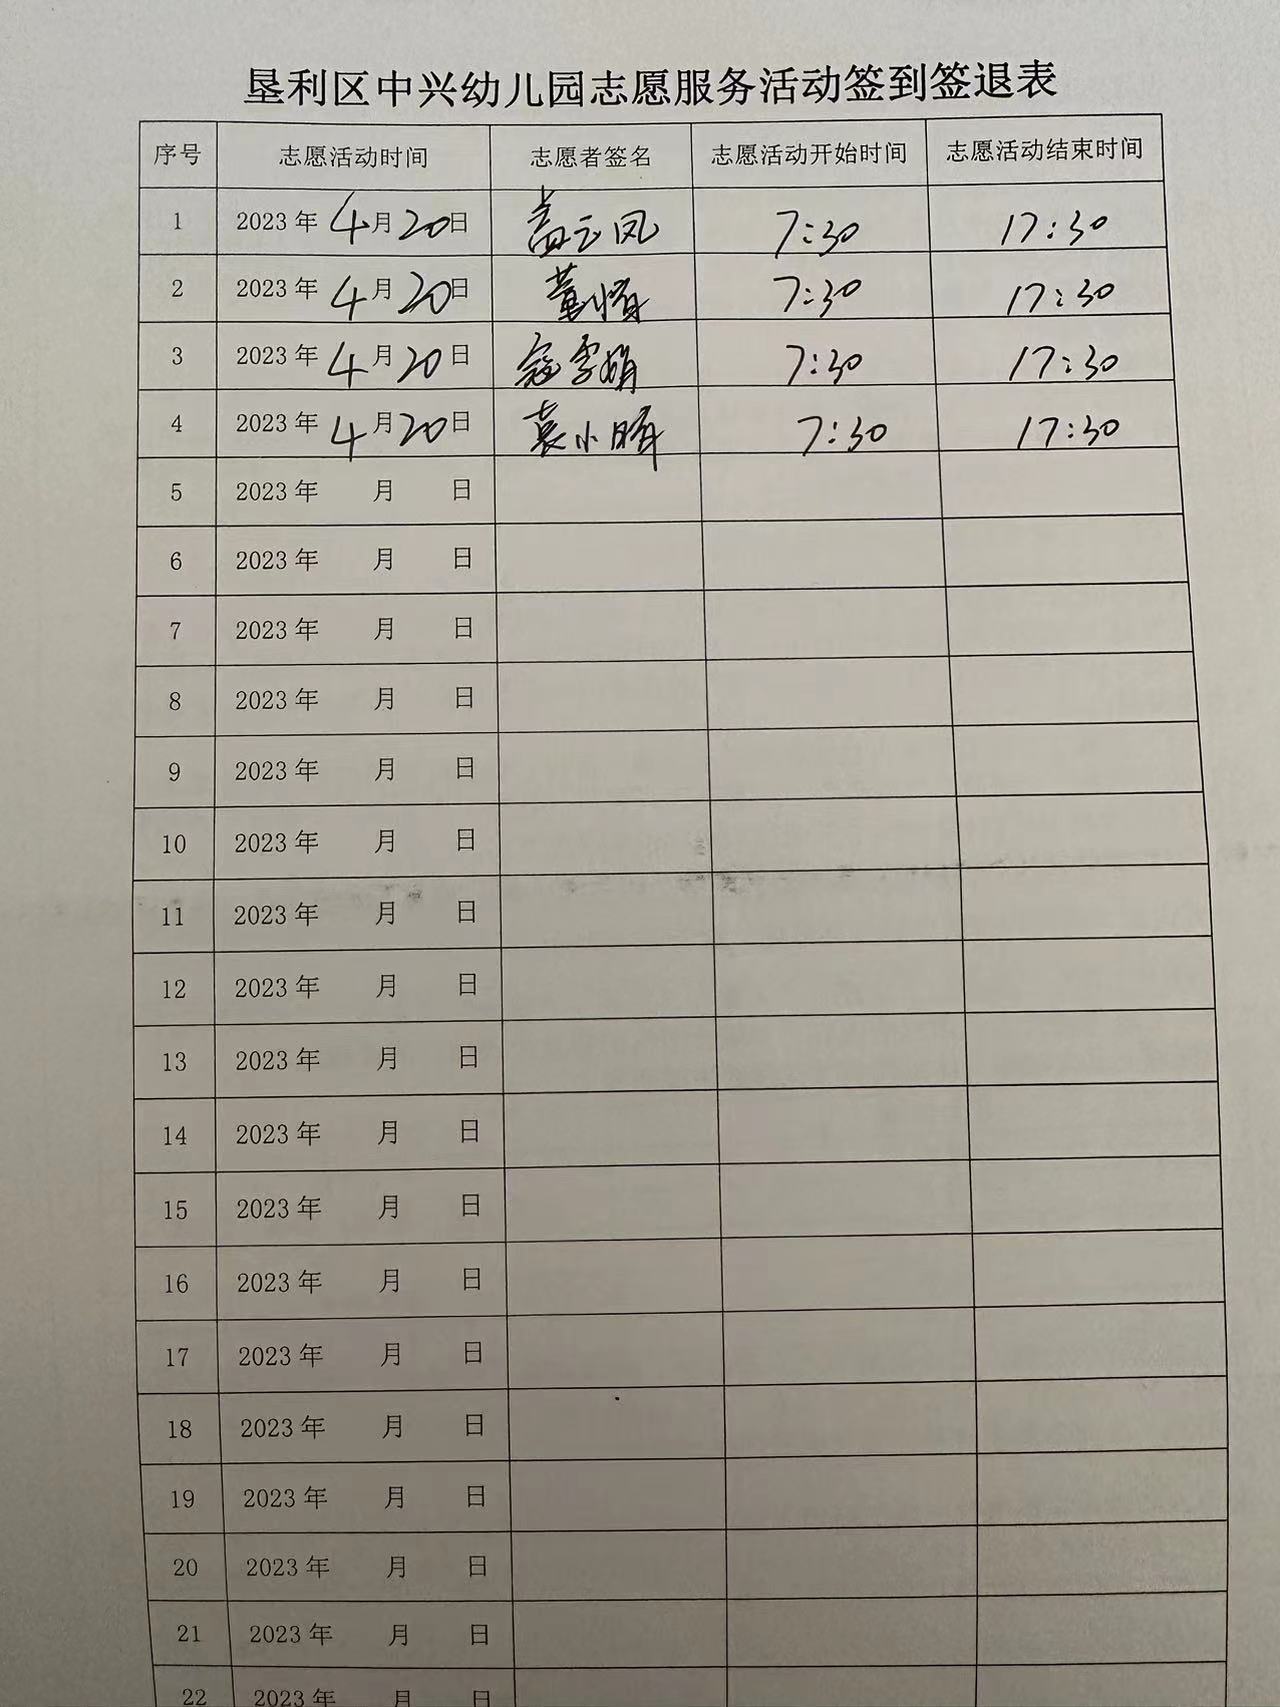 垦利区中兴幼儿园志愿服务活动签到签退表
序号 志愿活动时间 志愿者签名 志愿活动开始时间 志愿活动结束时间
1 2023年4月20日 盖云凤 7:30 17:30
2 2023年4月20日 董 7:30 17:30
3 2023年4月20日 寇雪娟 7:30 17:30
4 2023年4月20日 袁小晖 7:30 17:30
5 2023年 月 日
6 2023年 月 日
7 2023年 月 日
8 2023年 月 日
9 2023年 月 日
10 2023年 月 日
11 2023年 月 日
12 2023年 月 日
13 2023年 月 日
14 2023年 月 日
15 2023年 月 日
16 2023年 月 日
17 2023年 月 日
18 2023年 月 日
19 2023年 月 日
20 2023年 月 日
21 2023年 月 日
22 2023年 月 日